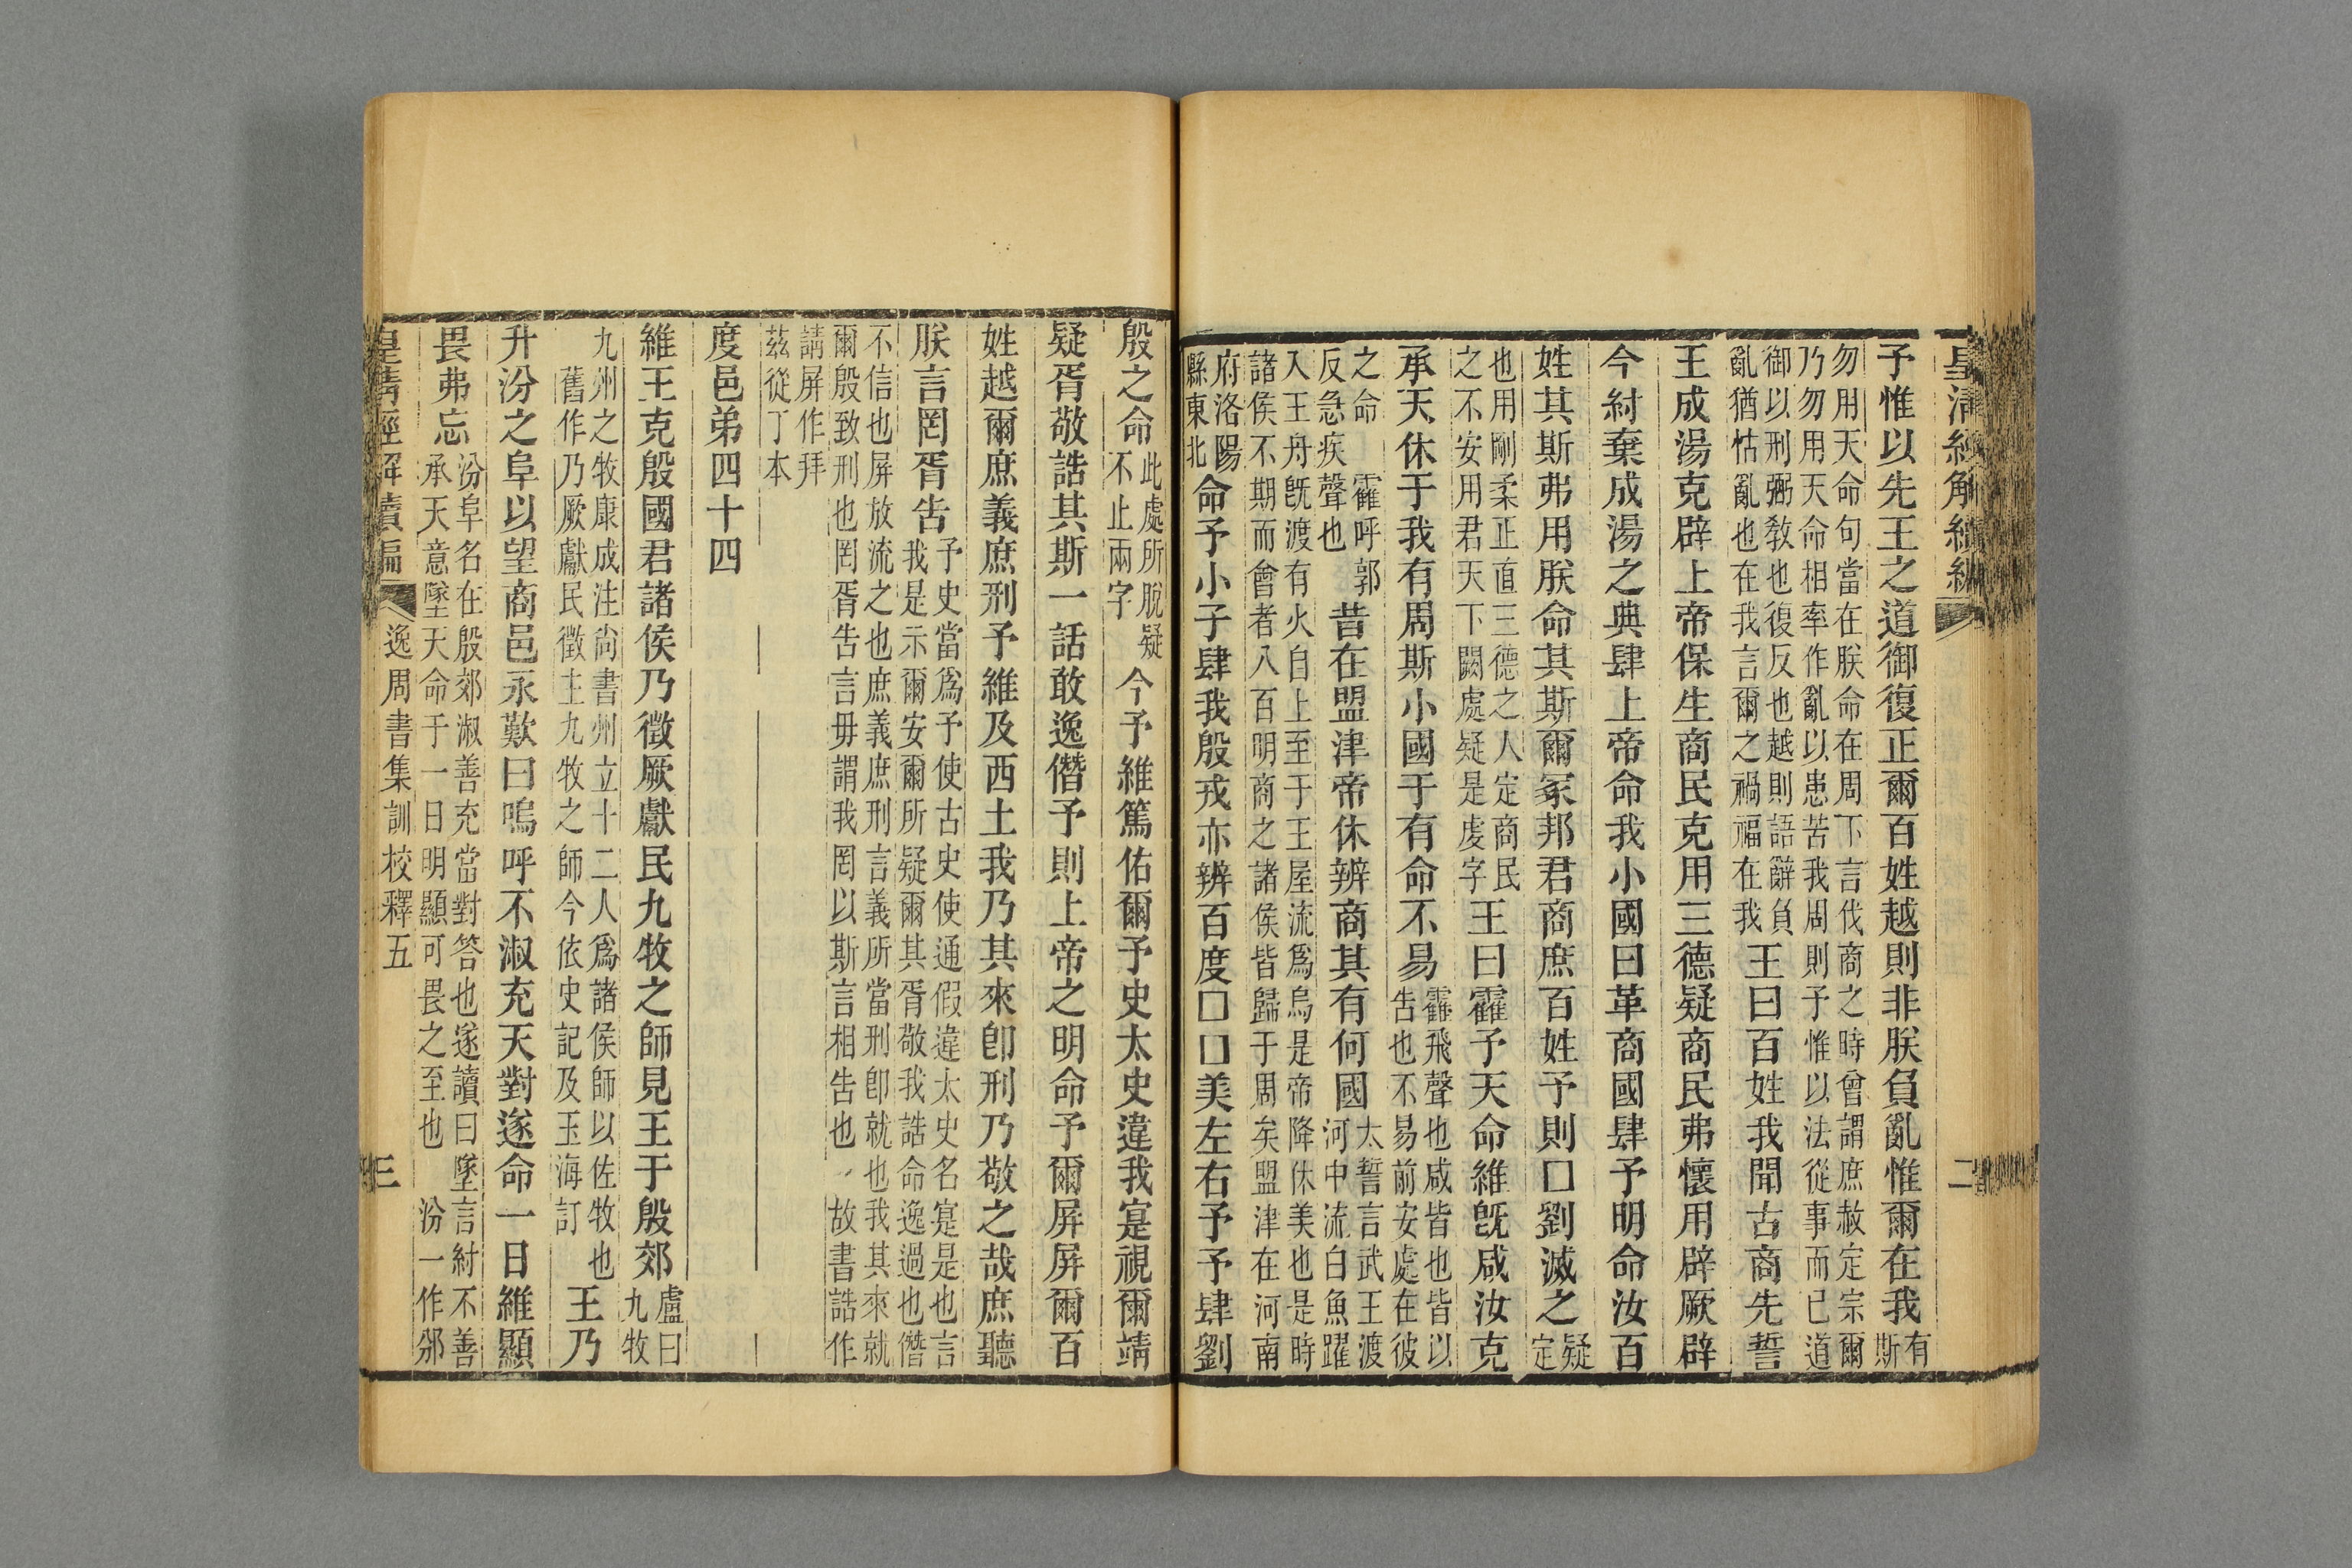 皇清經解續編 二
予惟以先王之道御復正爾百姓越則非朕負亂惟爾在我有斯
勿用天命句當在朕命在周下言伐商之時曾謂庶赦定宗爾
乃勿用天命相率作亂以患苦我周則予惟以法從事而已道
御以刑弼敎也復反也越則語辭負
亂猶怙亂也在我言爾之禍福在我
王曰百姓我聞古商先誓
王成湯克辟上帝保生商民克用三德疑商民弗懷用辟厥辟
今紂棄成湯之典肆上帝命我小國曰革商國肆予明命汝百
姓其斯弗用朕命其斯爾冢邦君商庶百姓予則□劉滅之疑定
也用剛柔正直三德之人定商民
之不安用君天下闕處疑是虔字
王曰霍予天命維旣咸汝克
承天休于我有周斯小國于有命不易
霍飛聲也咸皆也皆以
吿也不易前安處在彼
之命 霍呼郭
反急疾聲也
昔在盟津帝休辨商其有何國
太誓言武王渡
河中流白魚躍
入王舟旣渡有火自上至于王屋流爲烏是帝降休美也是時
諸侯不期而會者八百明商之諸侯皆歸于周矣盟津在河南
府洛陽
縣東北
命予小子肆我殷戎亦辨百度□□美左右予予肆劉
殷之命
此處所脫疑
不止兩字
今予維篤佑爾予史太史違我寔視爾靖
疑胥敬誥其斯一話敢逸僭予則上帝之明命予爾屏屏爾百
姓越爾庶義庶刑予維及西土我乃其來卽刑乃敬之哉庶聽
朕言罔胥吿
予史當爲予使古史使通假違太史名寔是也言
我是示爾安爾所疑爾其胥敬我誥命逸過也僭
不信也屏放流之也庶義庶刑言義所當刑卽就也我其來就
爾殷致刑也罔胥吿言毋謂我罔以斯言相吿也 故書誥作
請屏作拜
茲從丁本
度邑弟四十四
維王克殷國君諸侯乃徵厥獻民九牧之師見王于殷郊
盧曰
九牧
九州之牧康成注尙書州立十二人爲諸侯師以佐牧也
舊作乃厥獻民徵主九牧之師今依史記及玉海訂
王乃
升汾之阜以望商邑永歎曰嗚呼不淑充天對遂命一日維顯
畏弗忘
汾阜名在殷郊淑善充當對答也遂讀曰墜言紂不善
承天意墜天命于一日明顯可畏之至也 汾一作邠
皇淸經解續編 逸周書集訓校釋五 三